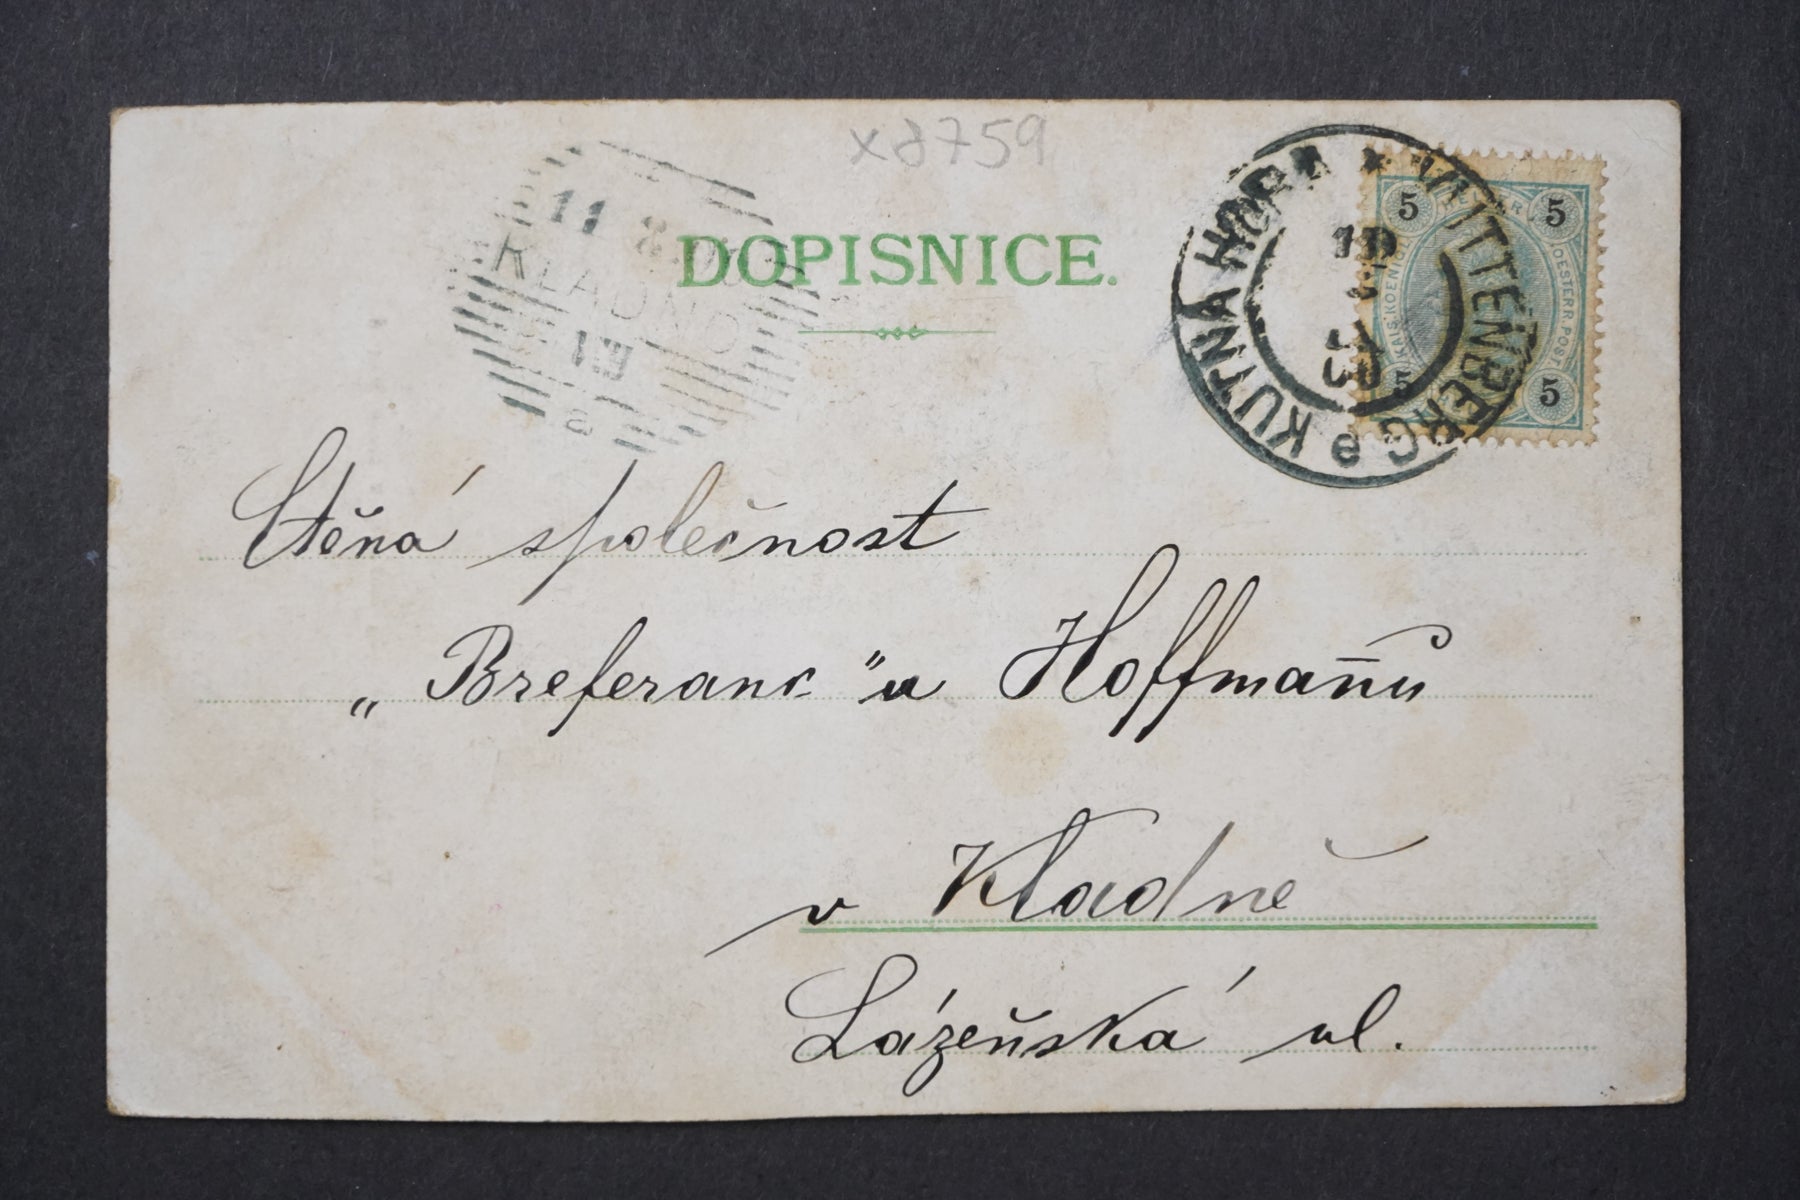 x8759
DOPISNICE.
11 8
KLADNO
13
a
KUTNÁ HORA * KUTTENBERG e
5 5 5 5
KAIS. KOENIGL. OESTERR. POST
Ctěná společnost
„Breferanc“ u Hoffmanů
v Kladně
Lázeňská ul.